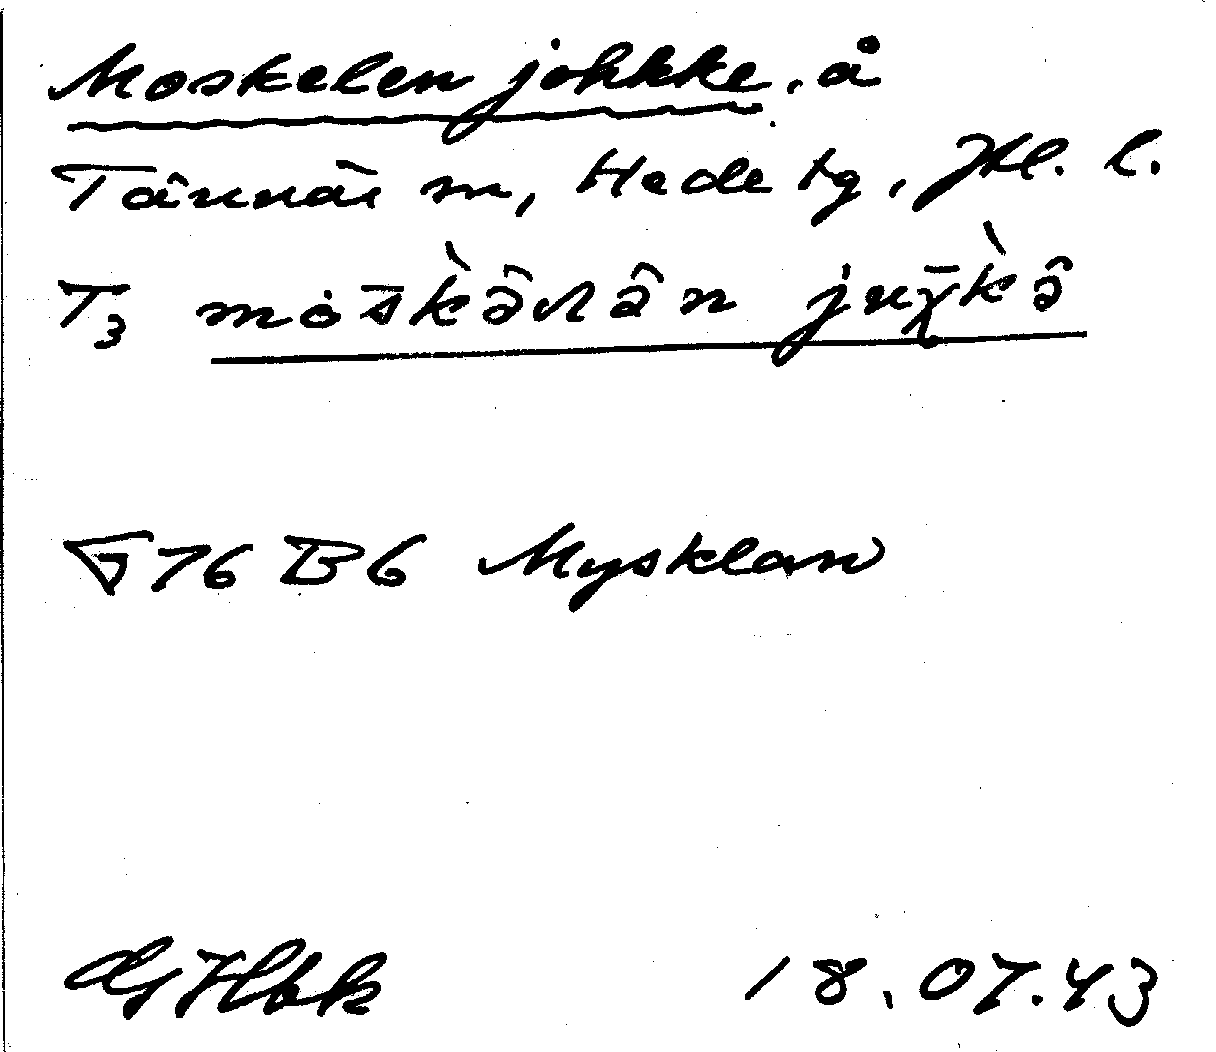 Moskelen johkke, å
Tännäs sn, Hede tg, Jtl. l.
T3 mȯs̄k̀ə̂λə̂n juχ̄k̀ə̂
F76 B6 Mysklan
GHbk 18.07.43